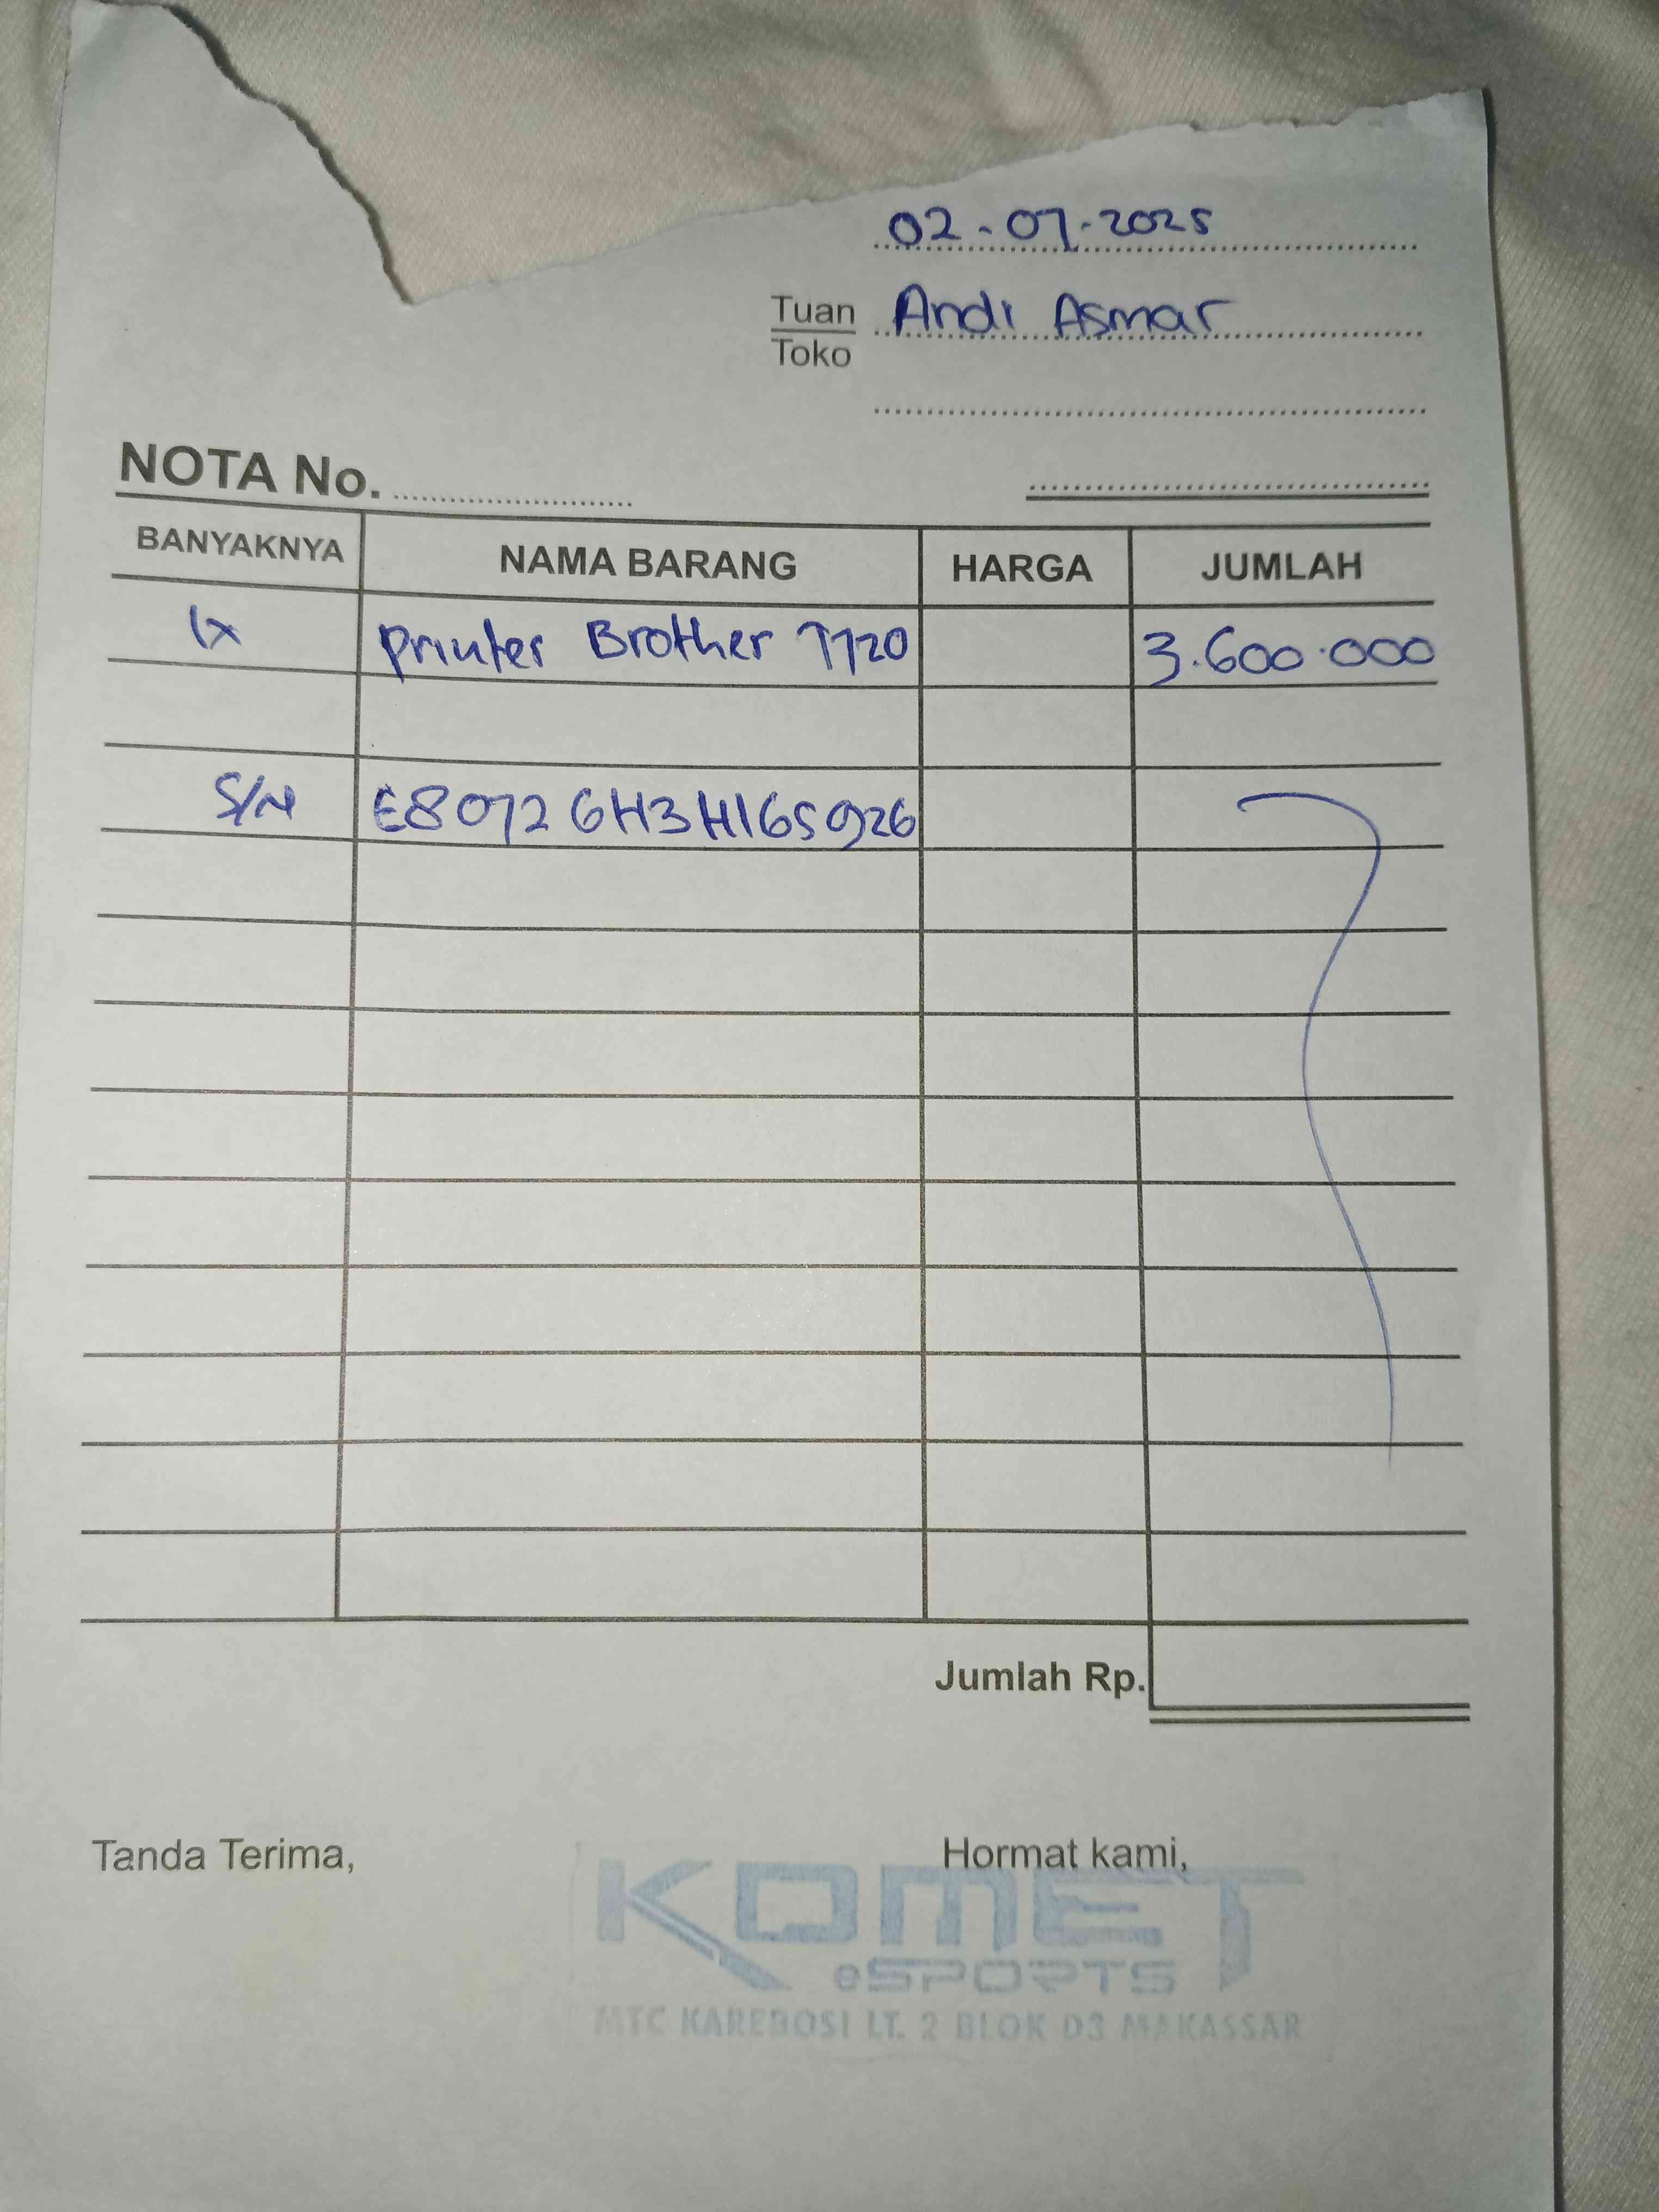 02-07-2025
Tuan Andi Asmar
Toko
NOTA No.
BANYAKNYA NAMA BARANG HARGA JUMLAH
1x Printer Brother T720 3.600.000
S/N E80726H3H165926
Jumlah Rp.
Tanda Terima, Hormat kami,
KOMET
eSPORTS
MTC KAREBOSI LT. 2 BLOK D3 MAKASSAR